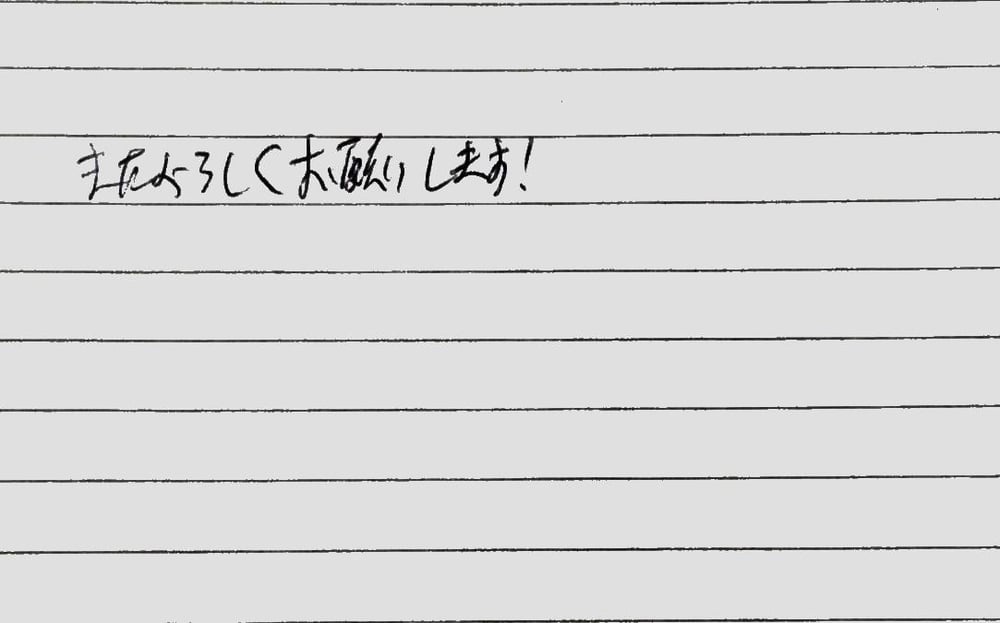 またよろしくお願いします!